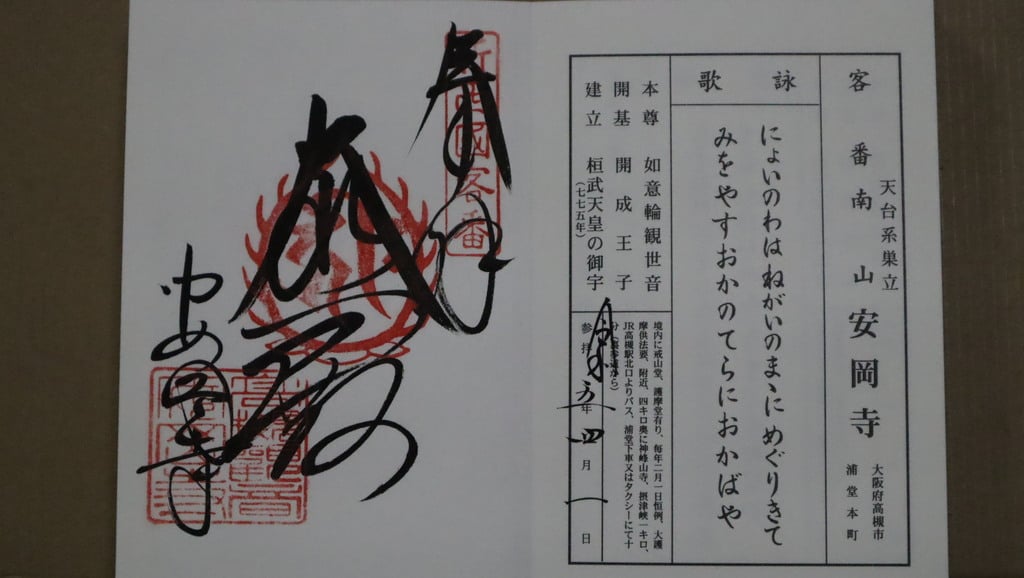 客番
南山 安岡寺
天台系巣立
大阪府高槻市
浦堂本町
詠歌
にょいのわはねがいのまゝにめぐりきて
みをやすおかのてらにおかばや
本尊 如意輪観世音
開基 開成王子
建立 桓武天皇の御宇
(七七五年)
境内に戒山堂、護摩堂有り、毎年二月一日恒例、大護
摩供法要、附近、四キロ奥に神峰山寺、摂津峡一キロ、
JR高槻駅北口よりバス、浦堂下車又はタクシーにて十
分(裏参道から)
参拝 年四月一日
奉拝
新西國客番
安岡寺